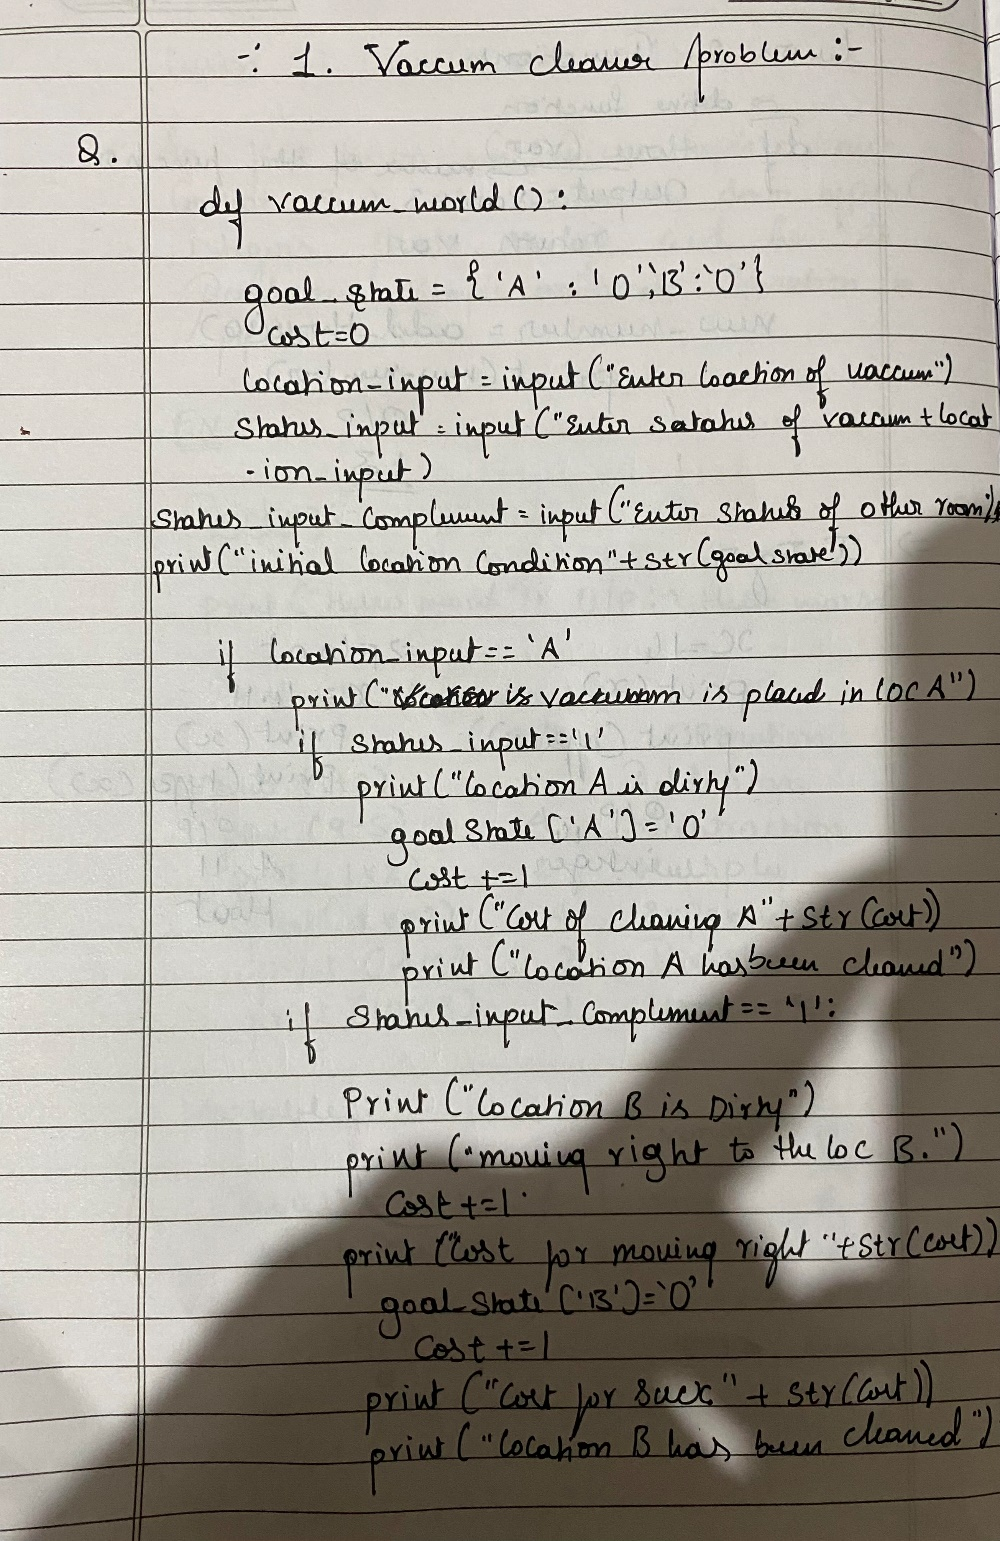 -: 1. Vaccum cleaner problem :-
Q.
def vaccum_world():
goal_state = {'A' : '0','B':'0'}
cost=0
location-input = input("Enter loaction of vaccum")
Status_input = input("Enter satatus of vaccum + locat
-ion_input)
Status_input_Complement = input("Enter status of other room")
print("initial location Condition"+str(goal state))
if location_input == 'A'
print(" is vaccuum is placed in loc A")
if Status_input=='1'
print("location A is dirty")
goal State ['A'] = '0'
cost +=1
print("Cost of cleaning A"+str(cost))
print("location A has been cleaned")
if Status_input_Complement == '1':
Print ("location B is Dirty")
print ("moving right to the loc B.")
Cost +=1
print ("Cost for moving right "+str(cost))
goal_State ['B']='0'
Cost +=1
print ("Cost for suck" + str(Cost))
print ("location B has been cleaned")